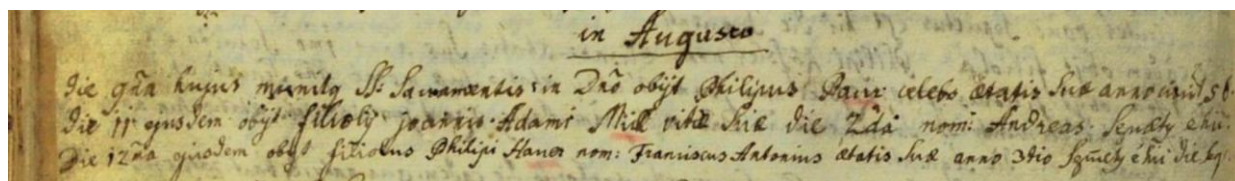 in Augusto
die 9na hujus munitq SS: Sacramentis in Dno obijt Philipus Paur celebs ætatis suæ anno circit 58.
die 11 ejusdem obijt filioly joannis Adami vitæ suæ die 2da nom: Andreas. Sepulty e
Die 12ma ejusdem obijt filiolus Philipi Hauer nom: Franciscus Antonius ætatis suæ anno 3tio die